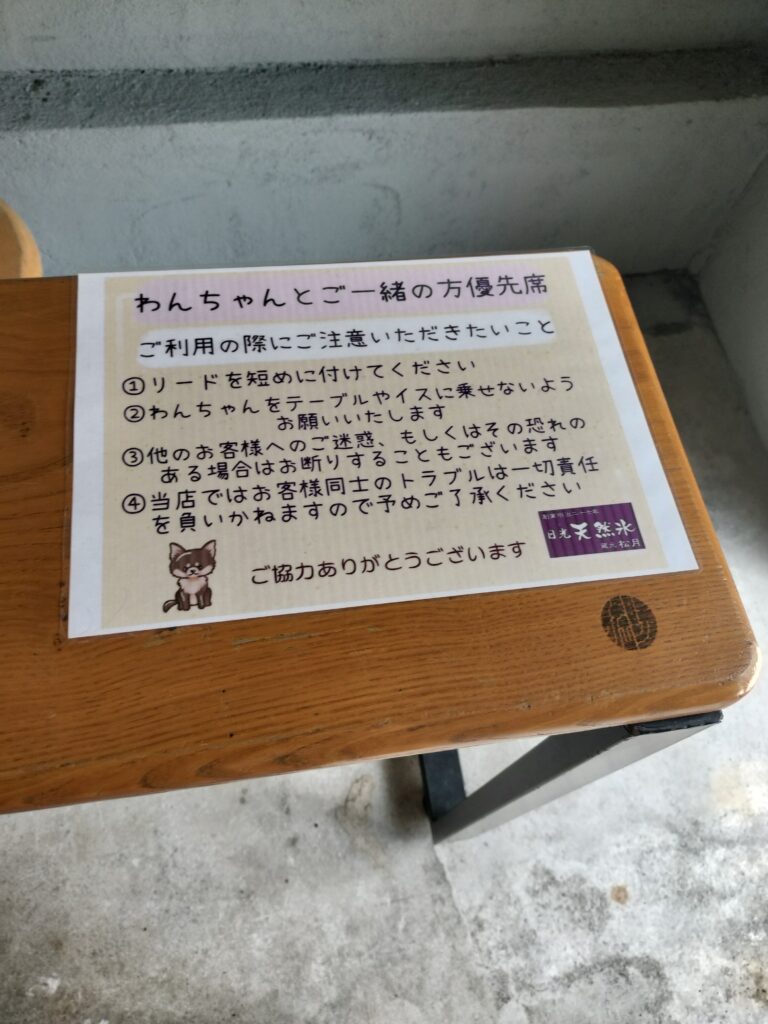 わんちゃんとご一緒の方優先席
ご利用の際にご注意いただきたいこと
①リードを短めに付けてください
②わんちゃんをテーブルやイスに乗せないよう
お願いいたします
③他のお客様へのご迷惑、もしくはその恐れの
ある場合はお断りすることもございます
④当店ではお客様同士のトラブルは一切責任
を負いかねますので予めご了承ください
ご協力ありがとうございます
日光 天然氷
蔵元 松月